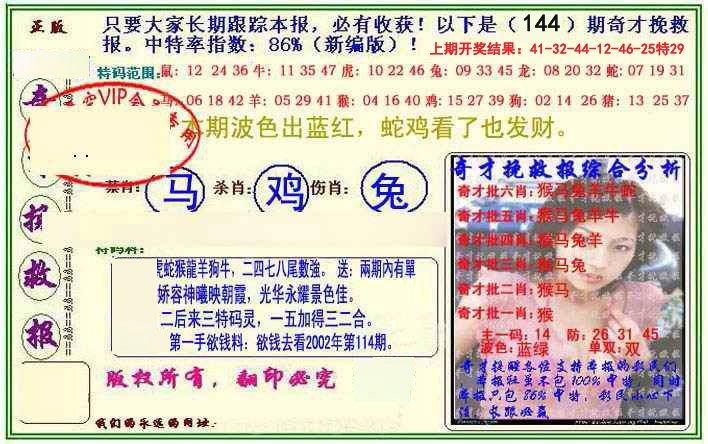 正版
只要大家长期跟踪本报，必有收获！以下是（144）期奇才挽救
报。中特率指数：86%（新编版）！
上期开奖结果：41-32-44-12-46-25特29
特码范围：鼠：12 24 36 牛：11 35 47 虎：10 22 46 兔：09 33 45 龙：08 20 32 蛇：07 19 31
06 18 42 羊：05 29 41 猴：04 16 40 鸡：15 27 39 狗：02 14 26 猪：13 25 37
VIP会
本期波色出蓝红，蛇鸡看了也发财。
禁肖：马 杀肖：鸡 伤肖：兔
特码料：
虎蛇猴龍羊狗牛，二四七八尾數強。 送：兩期內有單
娇容神曦映朝霞，光华永耀景色佳。
二后来三特码灵，一五加得三二合。
第一手欲钱料：欲钱去看2002年第114期。
版权所有，翻印必究
我们的永远的网址：
救
报
奇才挽救报综合分析
奇才批六肖：猴马兔羊牛蛇
奇才批五肖：猴马兔羊牛
奇才批四肖：猴马兔羊
奇才批三肖：猴马兔
奇才批二肖：猴马
奇才批一肖：猴
主一码：14 防：26 31 45
波色：蓝绿 单双：双
奇才提醒各位支持本报的彩民们
本报组虽不包100%中特，同时
本报只包86%中特，彩民小心下
注，长跟必赢